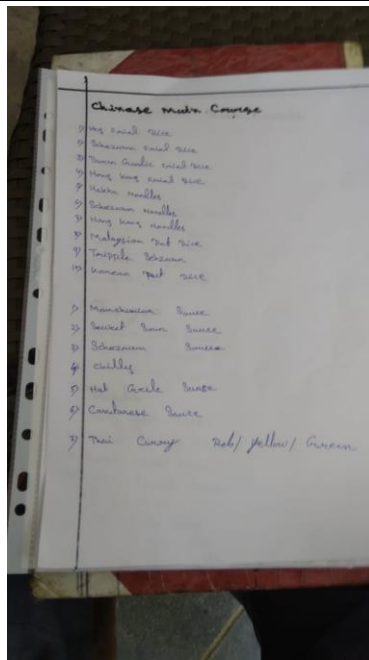 Chinese Main Course
1) Veg Fried Rice
2) Schezwan Fried Rice
3) Burn Garlic Fried Rice
4) Hong Kong Fried Rice
5) Hakka Noodles
6) Schezwan Noodles
7) Hong Kong Noodles
8) Malaysian Pot Rice
9) Tripple Schezwan
10) Korean Pot Rice
1) Manchurian Sauce
2) Sweet Sour Sauce
3) Schezwan Sauce
4) Chilly
5) Hot Garlic Sauce
6) Cantonese Sauce
7) Thai Curry Red/Yellow/Green